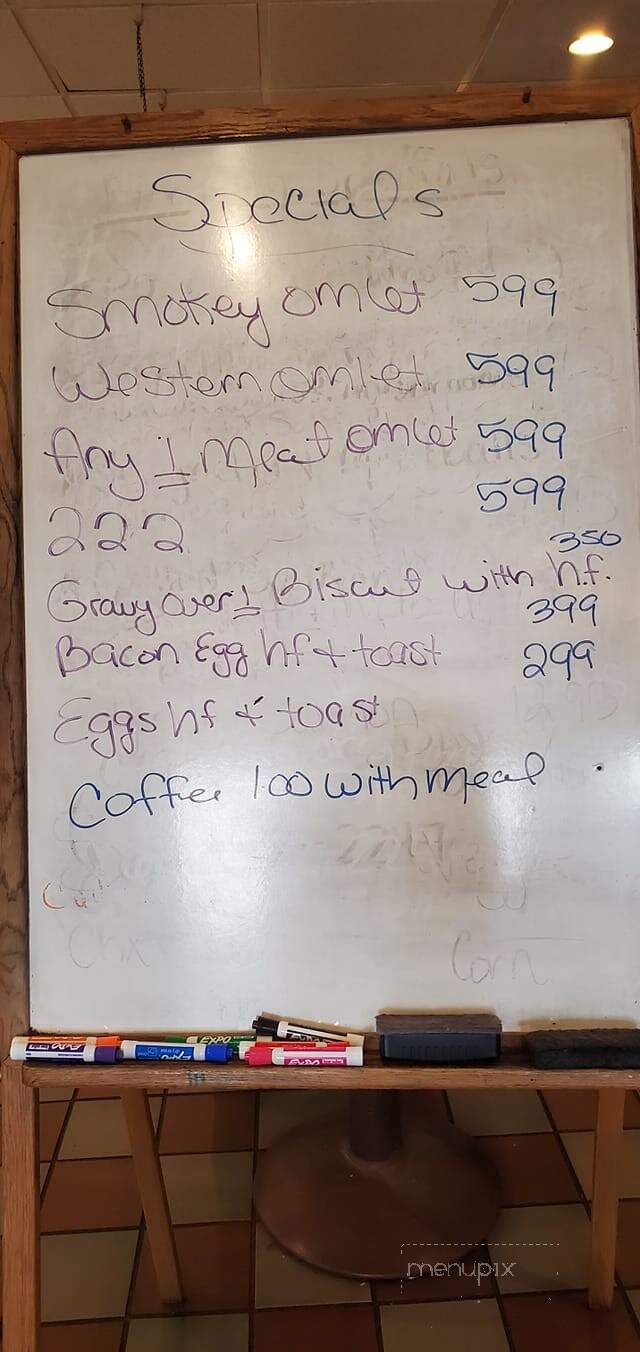 Specials
Smokey omlet 599
Western omlet 599
Any 1 Meat omlet 599
222 599
Gravy over 1 Biscut with h.f. 350
Bacon Egg hf + toast 399
Eggs hf & toast 299
Coffee 1.00 with meal
Corn
EXPO
EXPO
EXPO
EXPO
menupix